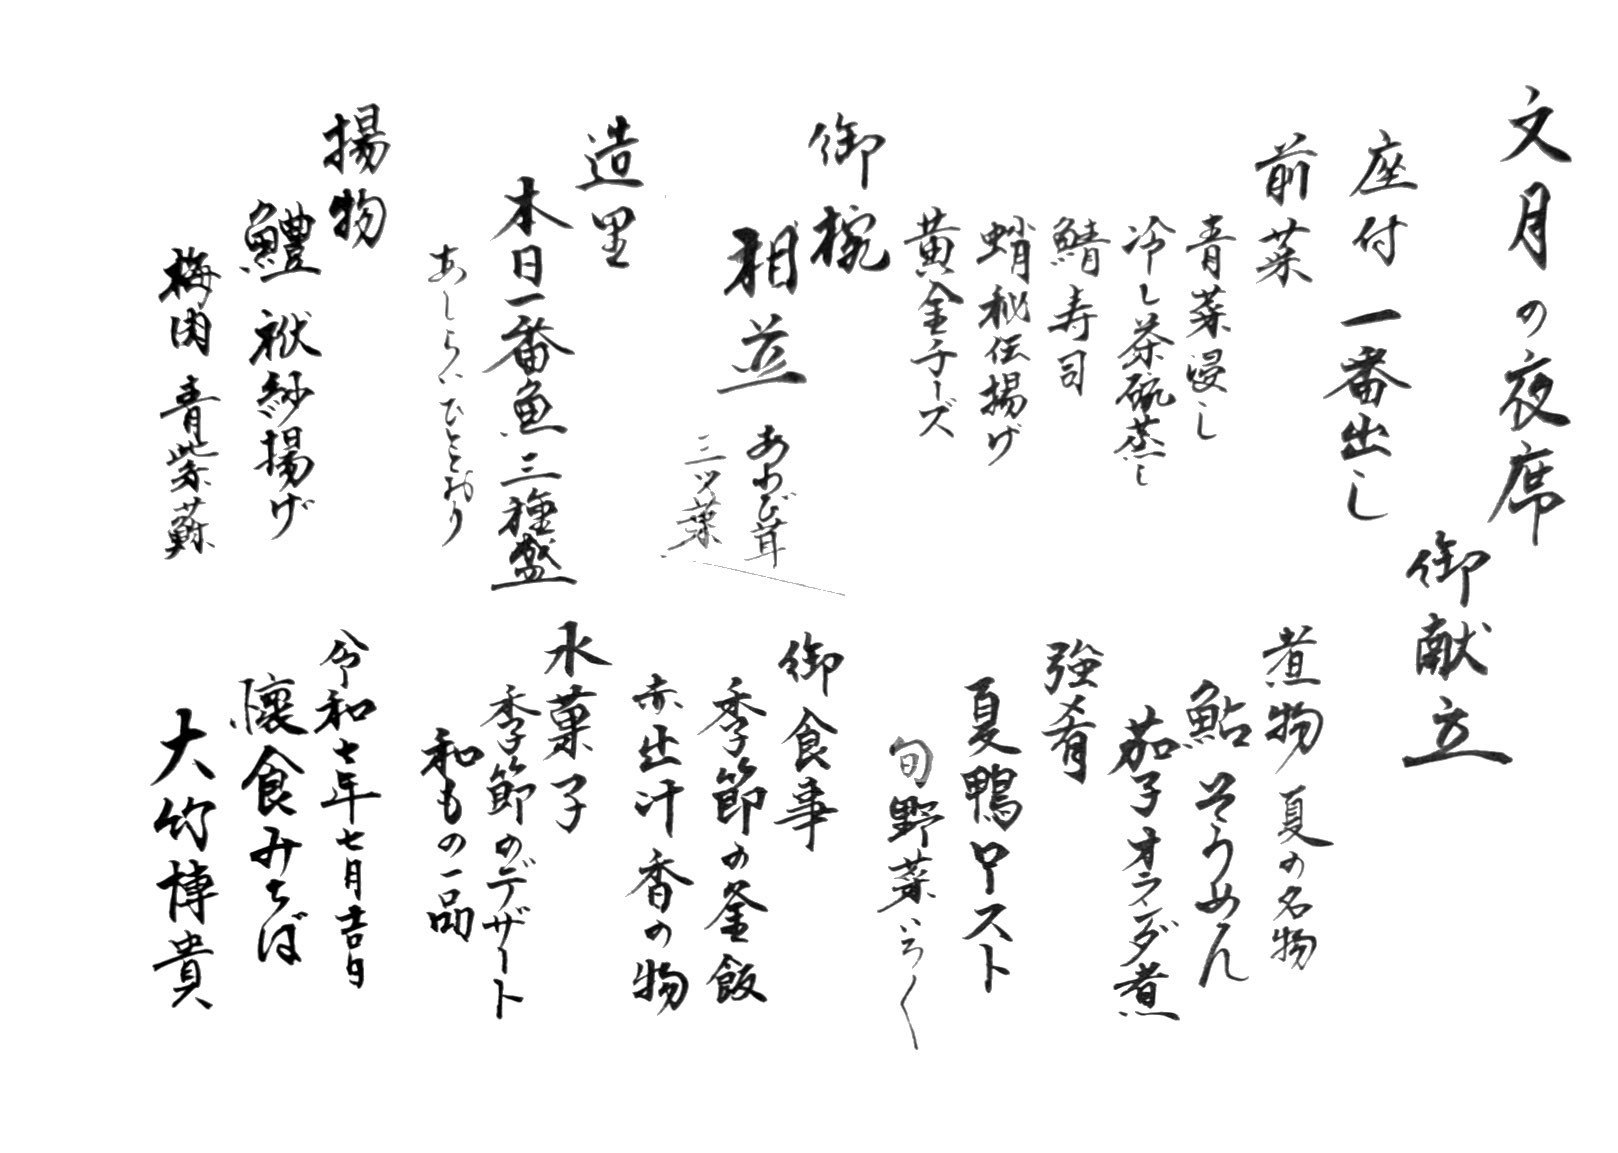 文月の夜席
御献立
座付 一番出し
前菜
青菜浸し
冷し茶碗蒸し
鯖寿司
蛸秘伝揚げ
黄金チーズ
御椀
相並
あわび茸
三ツ葉
造里
本日一番魚三種盛
あしらいひととおり
揚物
鱧 袱紗揚げ
梅肉 青紫蘇
煮物 夏の名物
鮎そうめん
茄子オランダ煮
強肴
夏鴨ロースト
旬野菜いろ〱
御食事
季節の釜飯
赤出汁 香の物
水菓子
季節のデザート
和もの一品
令和七年七月吉日
懐食みちば
大竹博貴